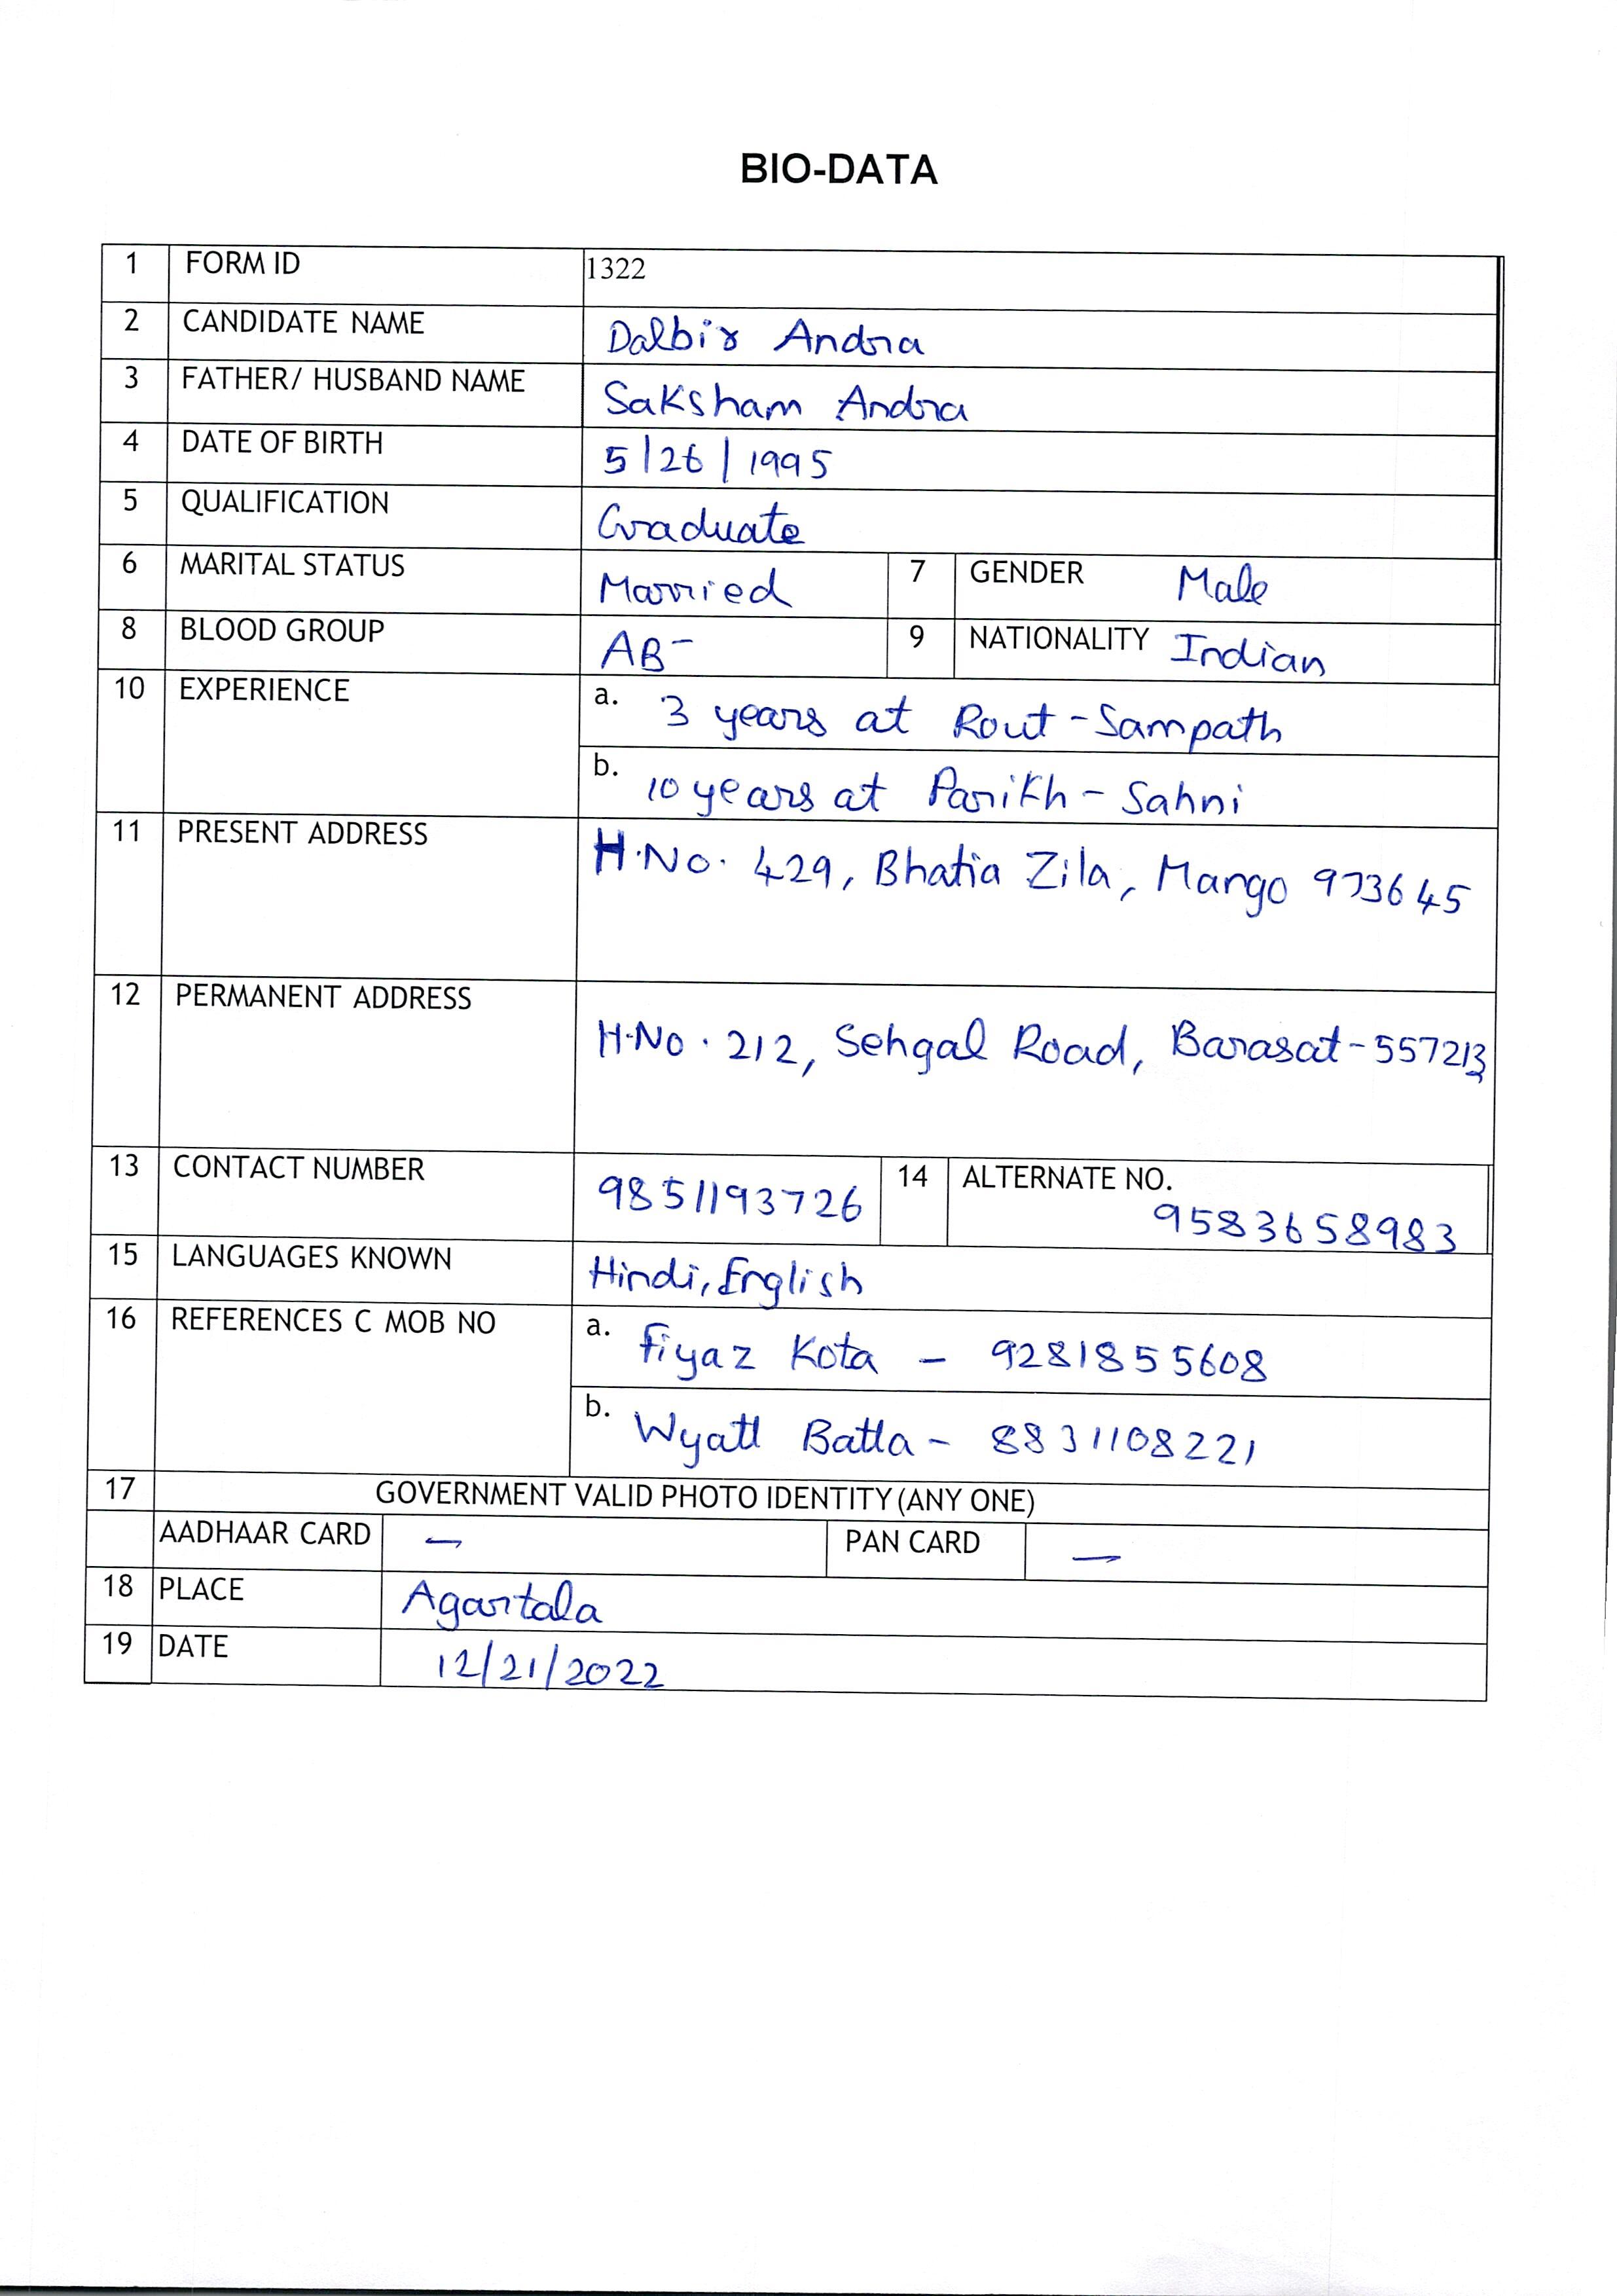 BIO-DATA
1 FORM ID 1322
2 CANDIDATE NAME Dalbir Andra
3 FATHER/ HUSBAND NAME Saksham Andra
4 DATE OF BIRTH 5/26/1995
5 QUALIFICATION Graduate
6 MARITAL STATUS Married 7 GENDER Male
8 BLOOD GROUP AB- 9 NATIONALITY Indian
10 EXPERIENCE a. 3 years at Rout-Sampath
b. 10 years at Parikh-Sahni
11 PRESENT ADDRESS H.No. 429, Bhatia Zila, Mango 973645
12 PERMANENT ADDRESS H.No. 212, Sehgal Road, Barasat-557213
13 CONTACT NUMBER 9851193726 14 ALTERNATE NO. 9583658983
15 LANGUAGES KNOWN Hindi, English
16 REFERENCES C MOB NO a. Fiyaz Kota - 9281855608
b. Wyatt Batta - 8831108221
17 GOVERNMENT VALID PHOTO IDENTITY (ANY ONE)
AADHAAR CARD - PAN CARD -
18 PLACE Agartala
19 DATE 12/21/2022